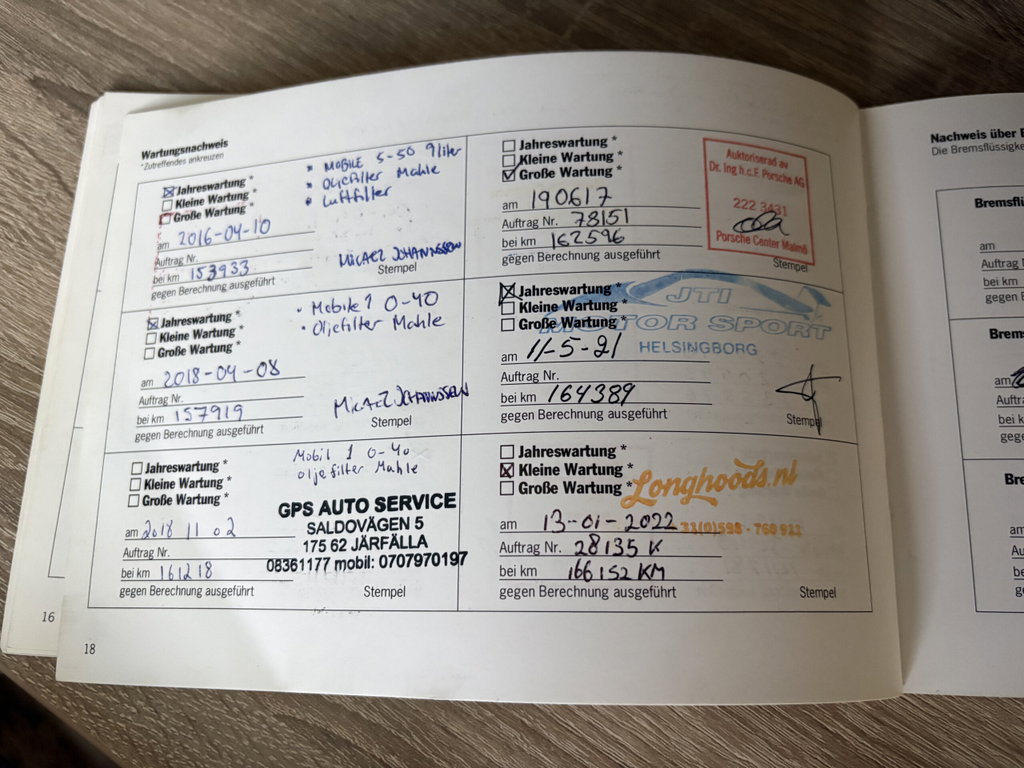 Wartungsnachweis
*Zutreffendes ankreuzen
Jahreswartung *
Kleine Wartung *
Große Wartung *
* MOBILE 5-50 9liter
* Oljefilter Mahle
* Luftfilter
am 2016-04-10
Auftrag Nr.
bei km 153933
gegen Berechnung ausgeführt
MICAEL JOHANNSSON
Stempel
Jahreswartung *
Kleine Wartung *
Große Wartung *
• Mobile 1 0-40
• Oljefilter Mahle
am 2018-04-08
Auftrag Nr.
bei km 157919
gegen Berechnung ausgeführt
MICAEL JOHANNSSON
Stempel
Jahreswartung *
Kleine Wartung *
Große Wartung *
Mobil 1 0-40
oljefilter Mahle
am 2018 11 02
Auftrag Nr.
bei km 161218
gegen Berechnung ausgeführt
GPS AUTO SERVICE
SALDOVÄGEN 5
175 62 JÄRFÄLLA
08361177 mobil: 0707970197
Stempel
Jahreswartung *
Kleine Wartung *
Große Wartung *
am 190617
Auftrag Nr. 78151
bei km 162596
gegen Berechnung ausgeführt
Auktoriserad av
Dr. Ing h.c.F. Porsche AG
222 3431
Porsche Center Malmö
Stempel
Jahreswartung *
Kleine Wartung *
Große Wartung *
am 11-5-21
Auftrag Nr.
bei km 164389
gegen Berechnung ausgeführt
JTI
MOTOR SPORT
HELSINGBORG
Stempel
Jahreswartung *
Kleine Wartung *
Große Wartung *
am 13-01-2022
Auftrag Nr. 28135 K
bei km 166152 KM
gegen Berechnung ausgeführt
Longhoods.nl
31(0)598 - 768 922
Stempel
16
18
Nachweis über
Die Bremsflüssigke
Bremsflü
am
Auftrag
bei km
gegen B
Brems
am
Auftra
bei k
gege
Bre
am
Auf
be
g